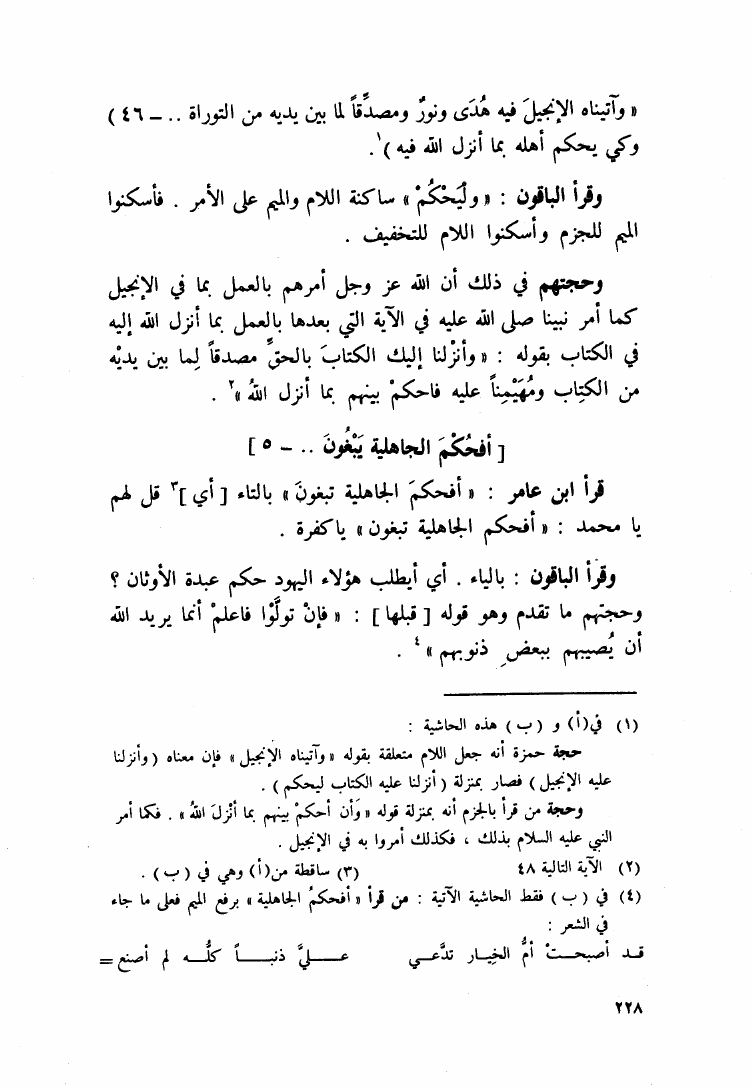 « وآتيناه الإنجيلَ فيه هُدَى ونورٌ ومصدِّقاً لما بين يديه من التوراة .. – ٤٦ )
وكي يحكم أهله بما أنزل الله فيه )١.
وقرأ الباقون : « ولْيَحْكُمْ » ساكنة اللام والميم على الأمر . فأسكنوا
الميم للجزم وأسكنوا اللام للتخفيف .
وحجتهم في ذلك أن الله عز وجل أمرهم بالعمل بما في الإنجيل
كما أمر نبينا صلى الله عليه في الآية التي بعدها بالعمل بما أنزل الله إليه
في الكتاب بقوله : « وأنزْلنا إليك الكتابَ بالحقِّ مصدقاً لِما بين يديْه
من الكتِاب ومُهَيْمِناً عليه فاحكمْ بينهم بما أنزل اللهُ »٢ .
[ أفحُكْمَ الجاهلية يَبْغُونَ .. – ٥ ]
قرأ ابن عامر : « أفحكمَ الجاهلية تبغونَ » بالتاء [ أي ]٣ قل لهم
يا محمد : « أفحكم الجاهلية تبغون » ياكفرة .
وقرأ الباقون : بالياء . أي أيطلب هؤلاء اليهود حكم عبدة الأوثان ؟
وحجتهم ما تقدم وهو قوله [ قبلها ] : « فإنْ تولَّوْا فاعلمْ أنما يريد الله
أن يُصيبهم ببعضِ ذنوبهم »٤ .
(١) في(أ) و (ب) هذه الحاشية :
حجة حمزة أنه جعل اللام متعلقة بقوله « وآتيناه الإنجيل » فإن معناه ( وأنزلنا
عليه الإنجيل ) فصار بمنزلة ( أنزلنا عليه الكتاب ليحكم ) .
وحجة من قرأ بالجزم أنه بمنزلة قوله « وَأن أحكمْ بينهم بما أنْزلَ اللهُ » . فكما أمر
النبي عليه السلام بذلك ، فكذلك أمروا به في الإنجيل .
(٢) الآية التالية ٤٨ (٣) ساقطة من(أ) وهي في (ب) .
(٤) في (ب) فقط الحاشية الآتية : من قرأ « أفحكمُ الجاهلية » برفع الميم فعلى ما جاء
في الشعر :
قـد أصبحـتْ أمُّ الخِيـار تدَّعـي علـيَّ ذنبـاً كلُّـه لم أصنع =
٢٢٨